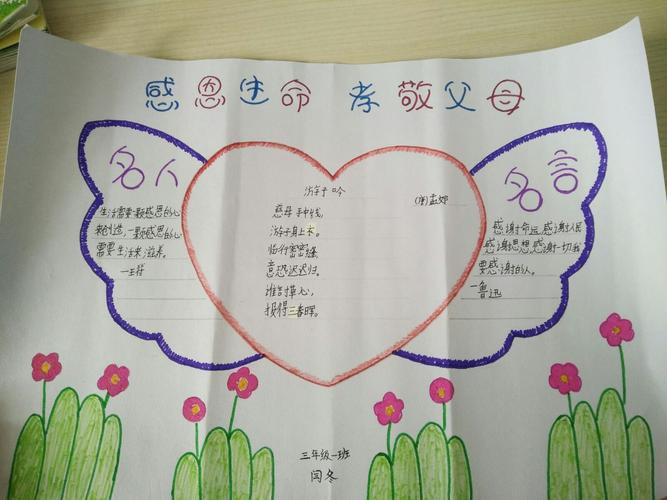 感恩生命 孝敬父母
名人
生活需要一颗感恩的心
来创造,一颗感恩的心
需要生活来滋养。
—王符
游子吟
(唐)孟郊
慈母手中线,
游子身上衣。
临行密密缝,
意恐迟迟归。
谁言寸草心,
报得三春晖。
名言
感谢命运,感谢人民
感谢思想,感谢一切我
要感谢的人。
—鲁迅
三年级一班
闫冬